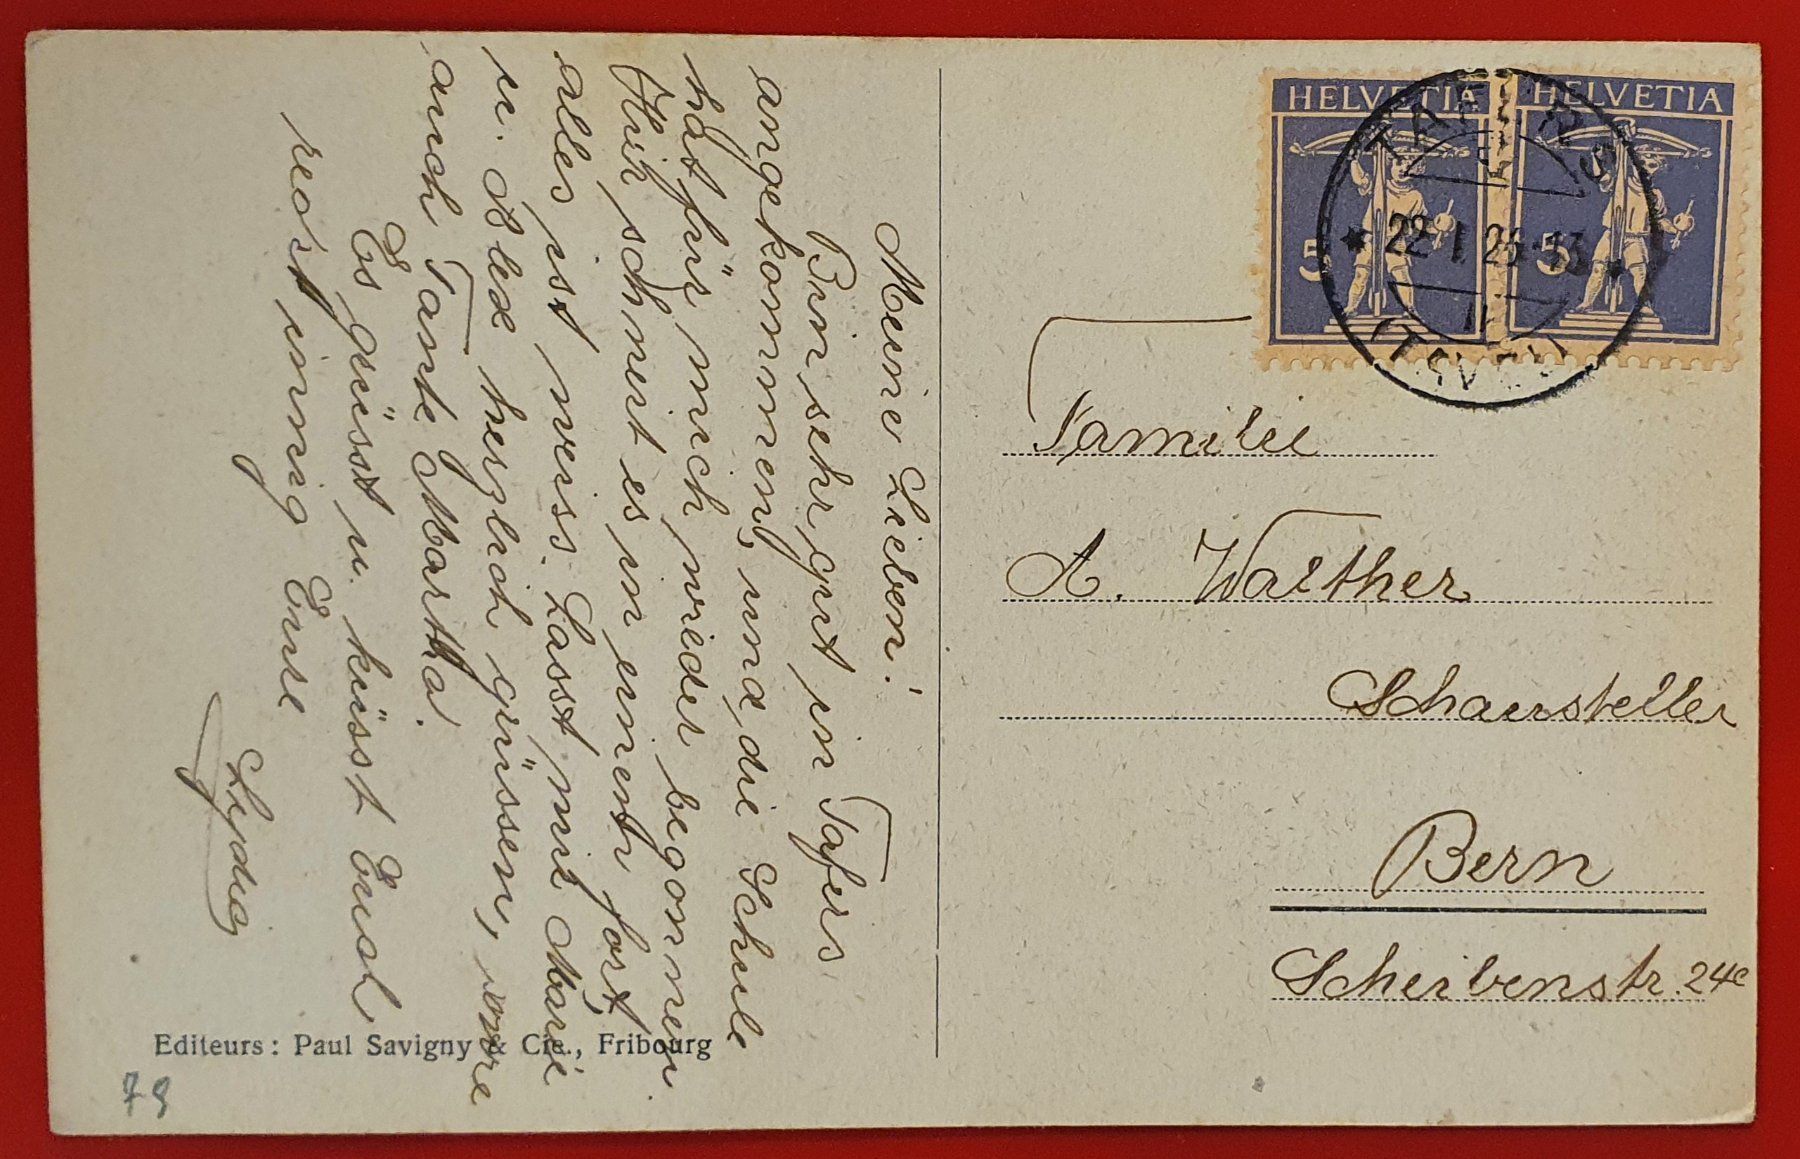 Meine Lieben!
Bin sehr gut in Tafers
angekommen, und die Schule
hat für mich wieder begonnen.
Hier schneit es in einem fort,
alles ist weiss. Lasst mir Marie
u. Alex herzlich grüssen, sowie
auch Tante Martha.
Es grüsst u. küsst Euch
recht innig Eure
Lydia
Editeurs: Paul Savigny & Cie., Fribourg
78
HELVETIA
5
HELVETIA
5
TAFERS
22.I.26-13
(TAVEL)
Familie
A. Walther
Schausteller
Bern
Scheibenstr. 24c